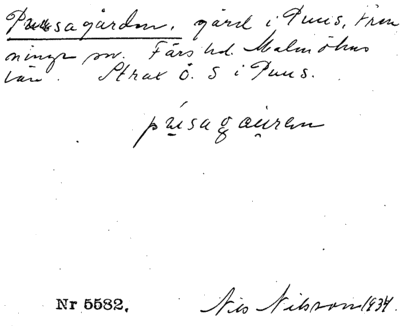 Pussagården, gård i Puus, Fren
ninge sn. Färs hd. Malmöhus
län. Strax Ö. S i Puus.
pu̱sagau̱ren
Nr 5582. Nils Nilsson 1934